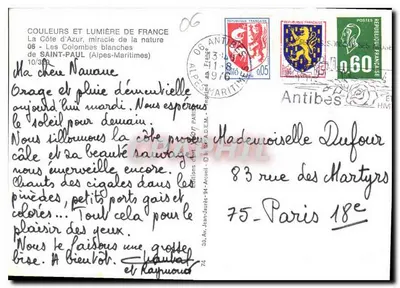 06
COULEURS ET LUMIÈRE DE FRANCE
La Côte d'Azur, miracle de la nature
06 - Les Colombes blanches
de SAINT-PAUL (Alpes-Maritimes)
10/3
06 ANTIBES
1-8
1976
ALPES MARITIMES
0,05
0,60
Antibes
Ma chère Nanane
Orage et pluie démentielle
aujourd'hui mardi. Nous espérons
le soleil pour demain.
Nous sillonnons la côte proven
cale et sa beauté sauvage
nous émerveille encore.
Chants des cigales dans les
pinèdes, petits ports gais et
colorés... Tout cela pour le
plaisir des yeux.
Nous te faisons une grosse
bise. A bientôt. Chantal
et Raymond
Mademoiselle Dufour
83 rue des Martyrs
75 - Paris 18e